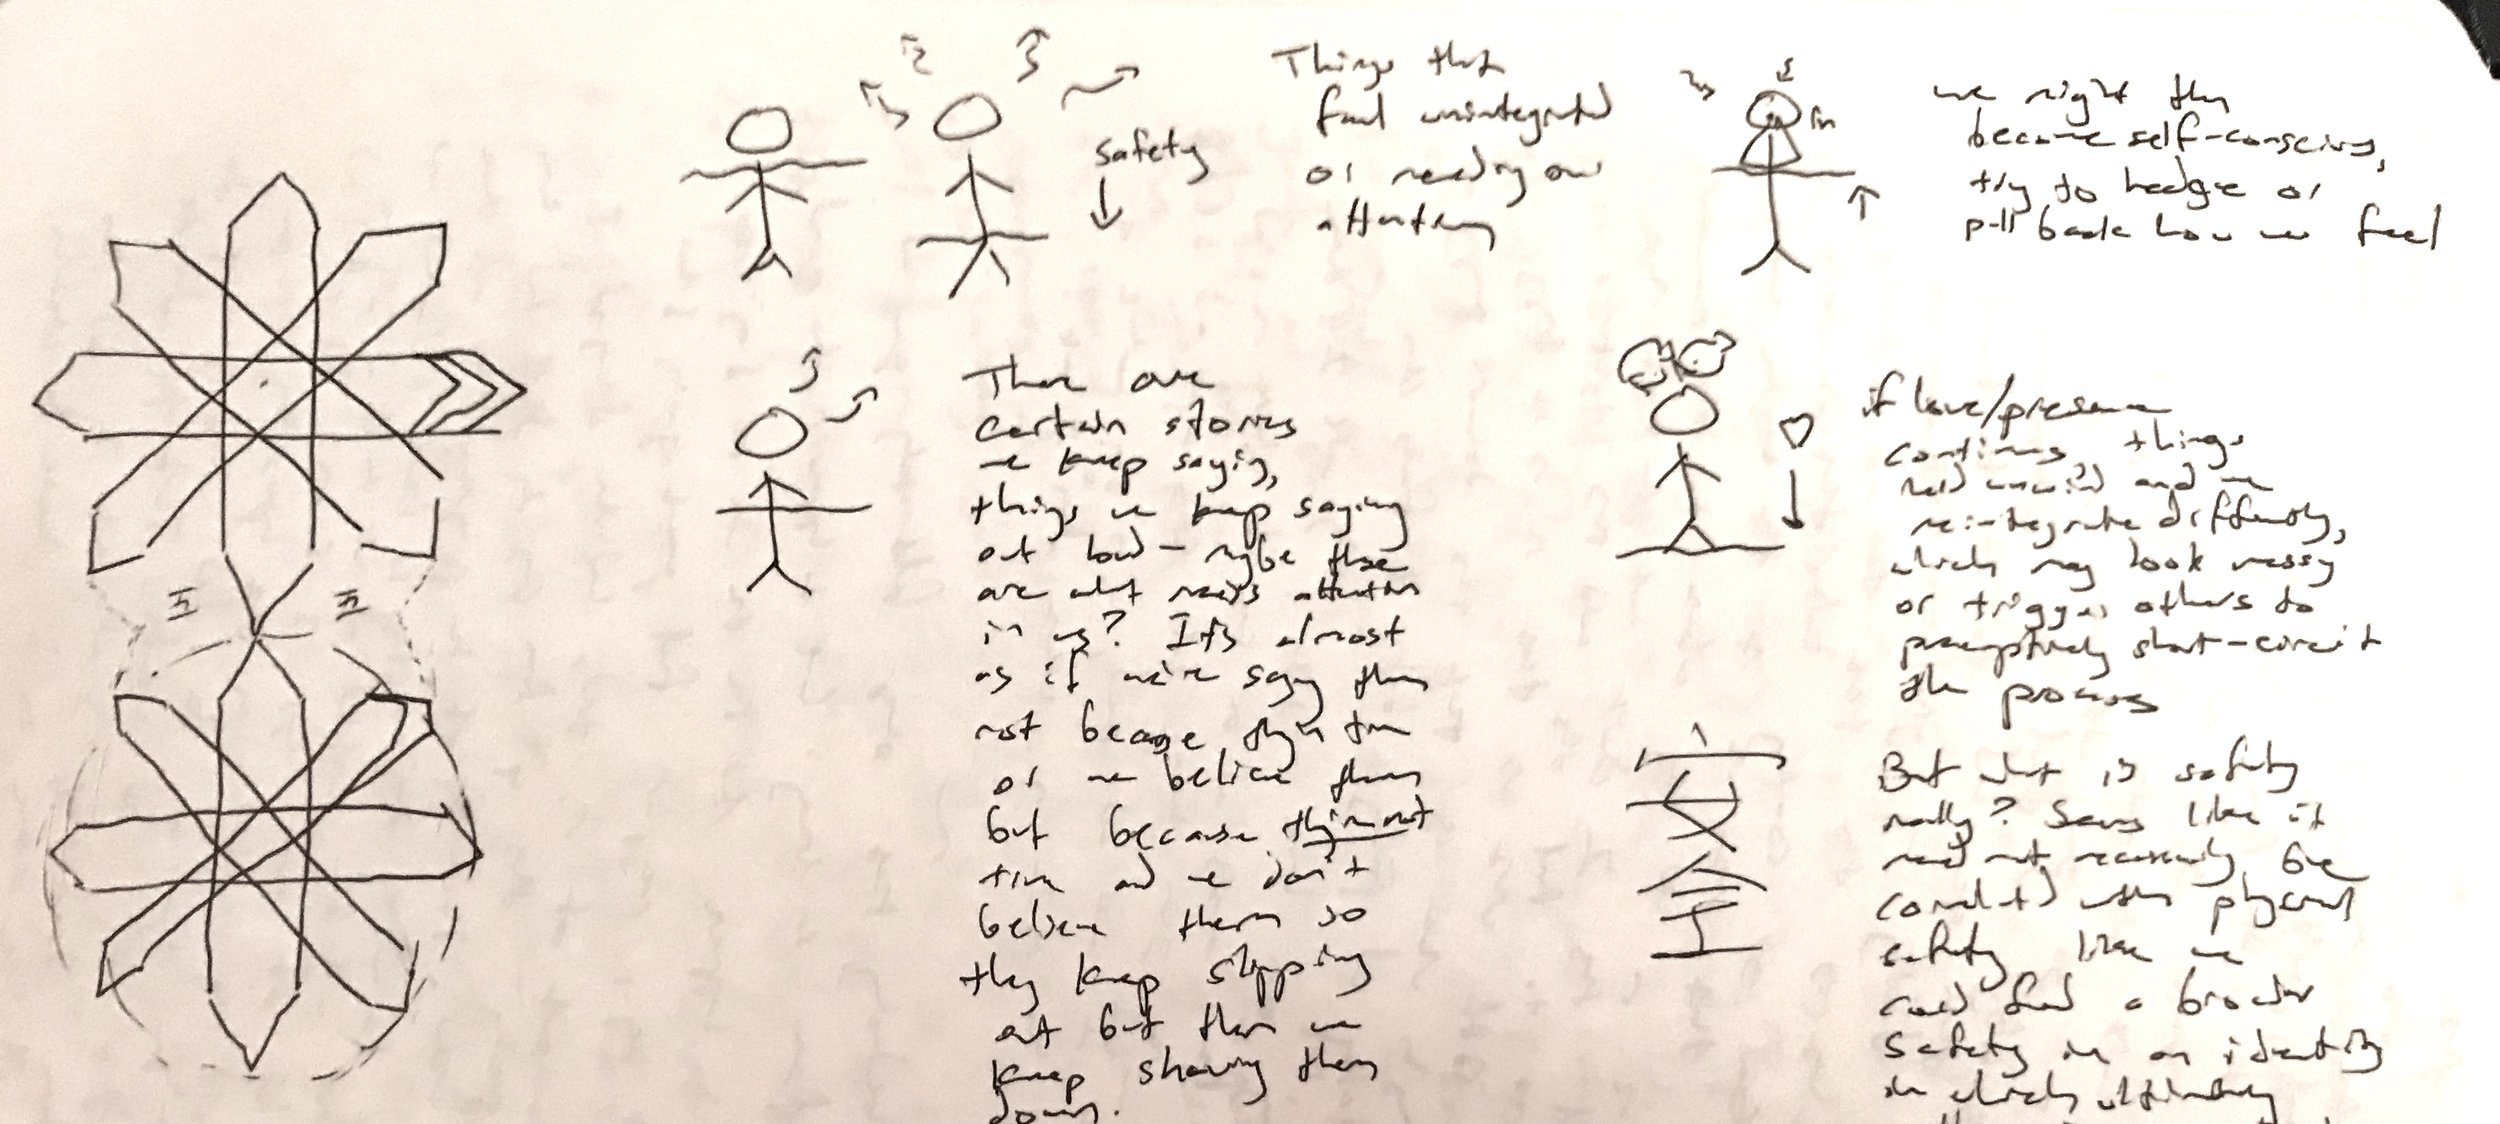 safety
Things that
feel unintegrated
or needing our
attention
in
we might then
become self-conscious,
try to hedge or
pull back how we feel
There are
certain stories
we keep saying,
things we keep saying
out loud - maybe these
are what needs attention
in us? It's almost
as if we're saying them
not because they're true
or we believe them
but because they're not
true and we don't
believe them so
they keep slipping
out but then we
keep shoving them
down.
if love/presence
continues, things
unwind and we
reintegrate differently,
which may look messy
or trigger others to
preemptively short-circuit
the process
安
全
But what is safety
really? Seems like it
need not necessarily be
correlated with physical
safety like we
could find a broader
safety in an identity
in which ultimately